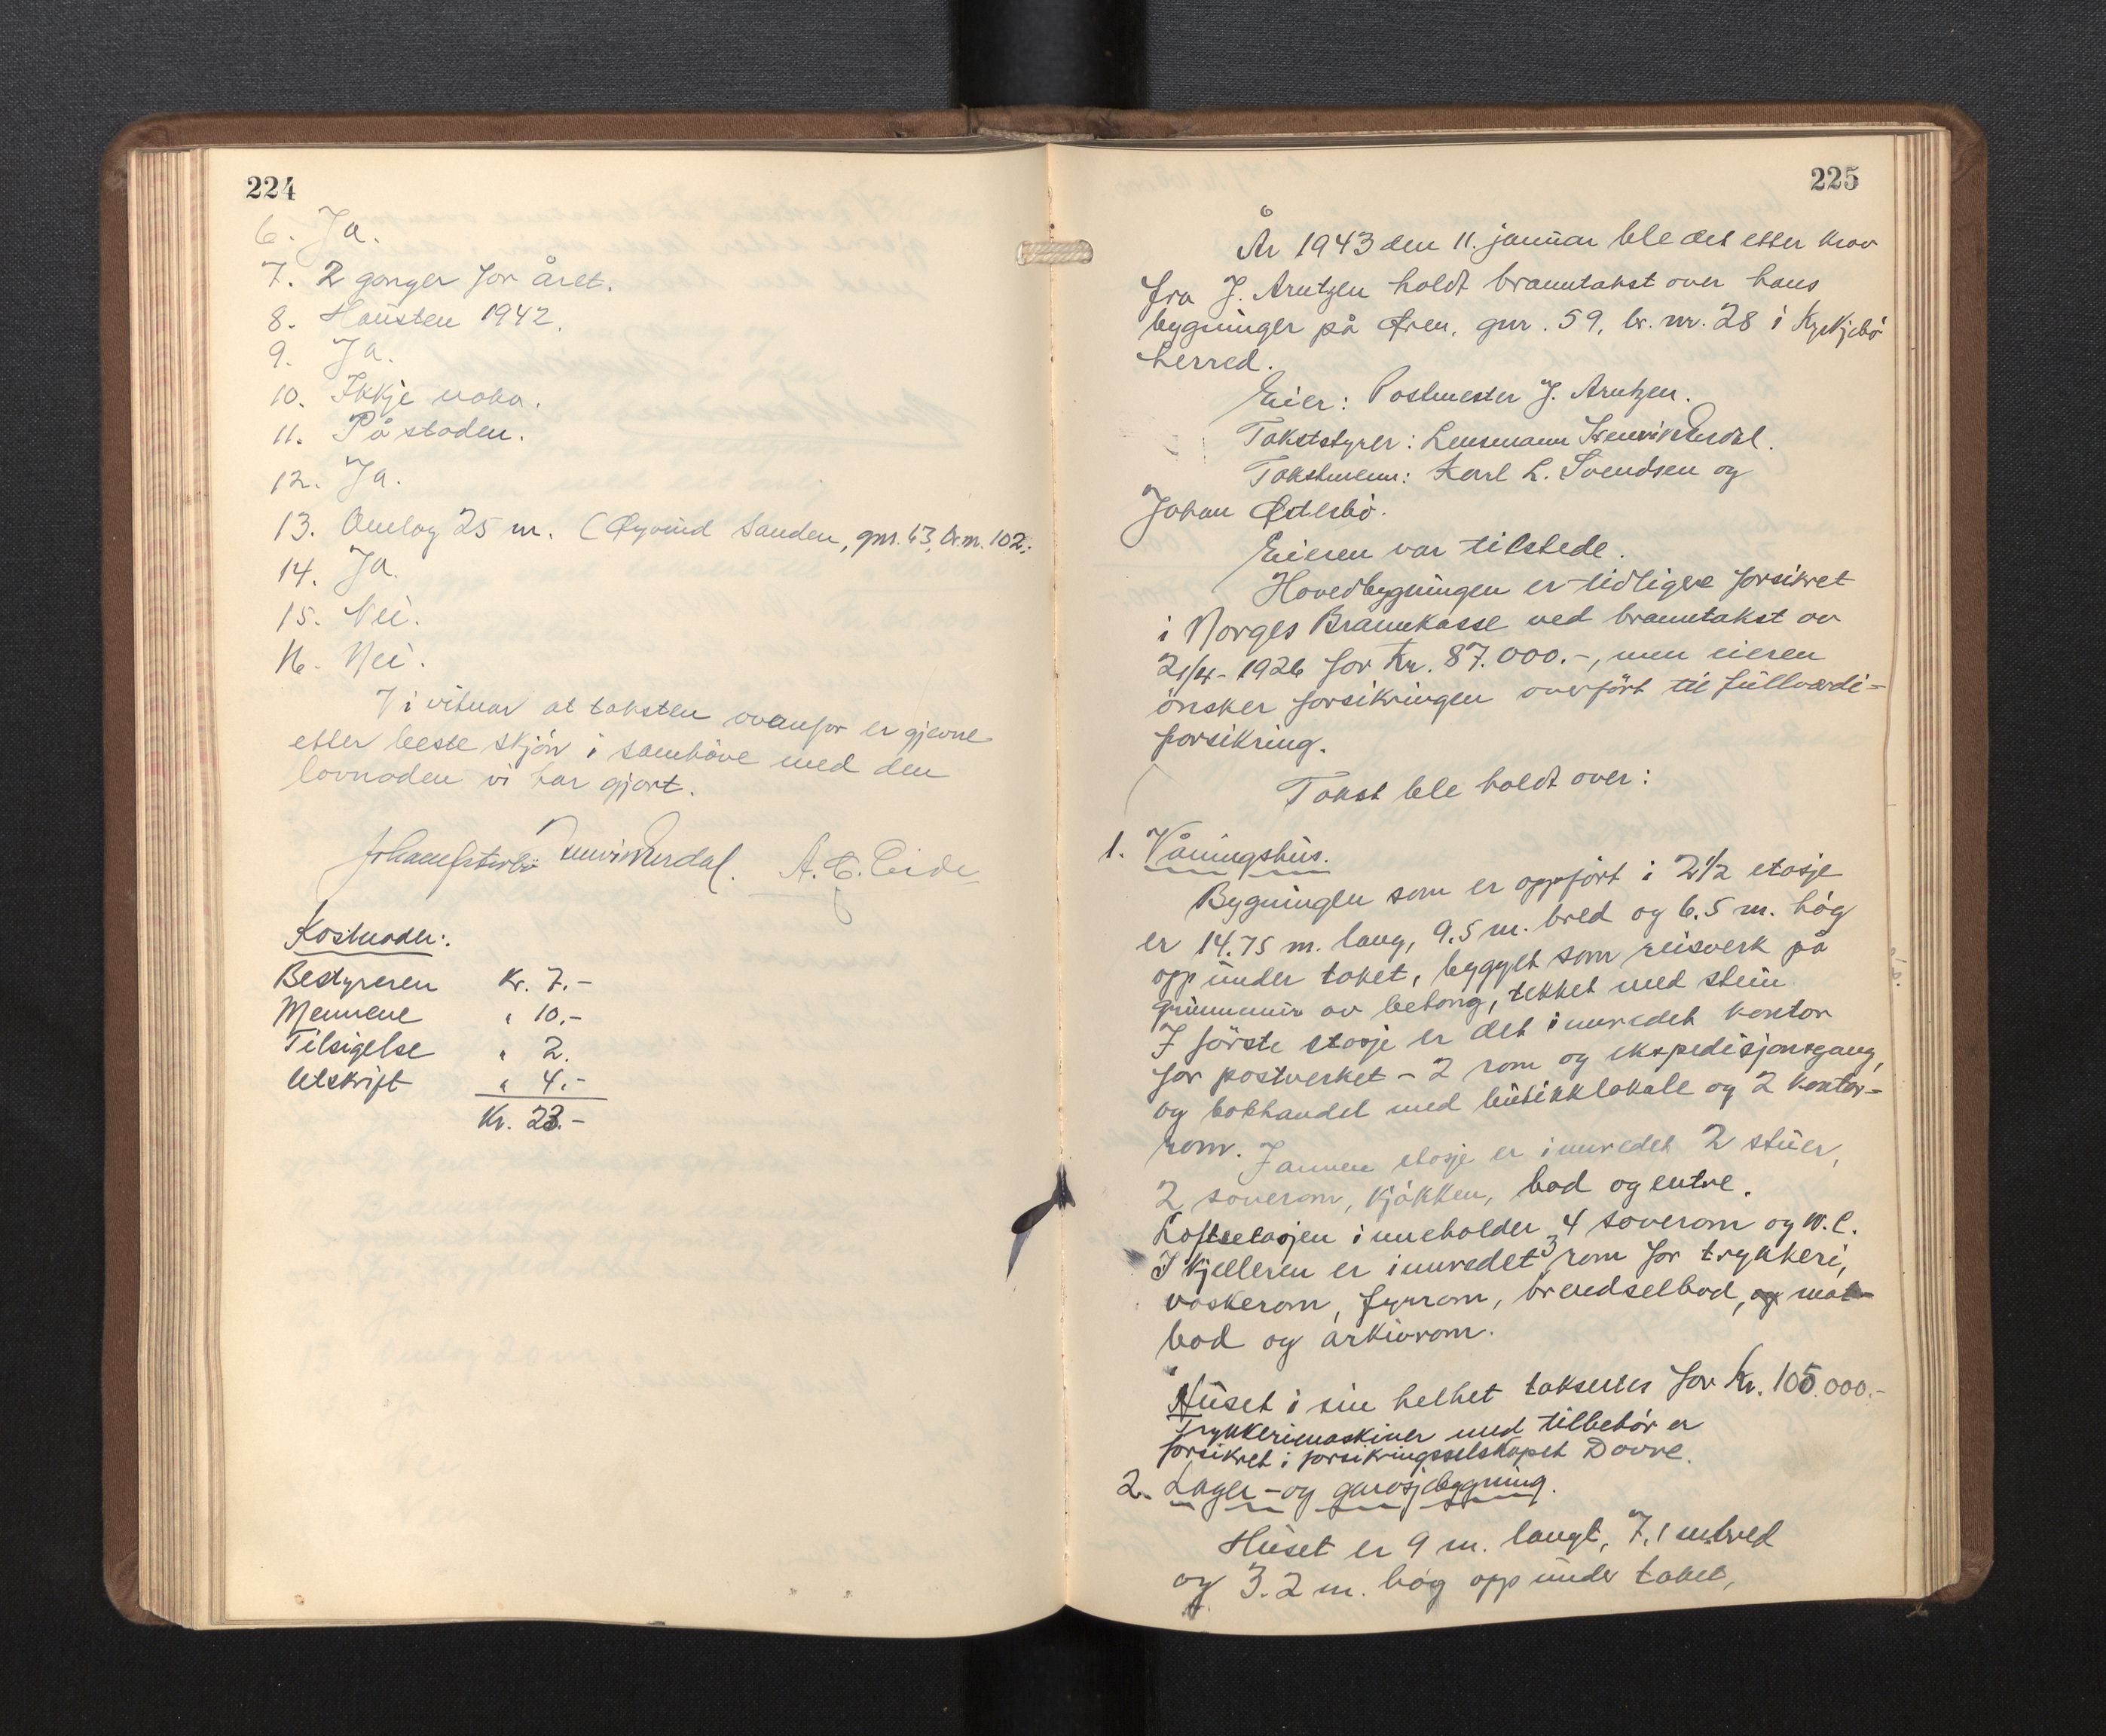 224
6. Ja.
7. 2 ganger for året.
8. Hausten 1942.
9. Ja.
10. Ikkje noko.
11. På staden.
12. Ja.
13. Omlag 25 m. (Øyvind Sanden, gnr. 63, br.nr. 102.
14. Ja.
15. Nei.
16. Nei.
Vi vitnar at taksten ovanfor er gjevne
etter beste skjön i samhöve med den
lovnaden vi har gjort.
Johan Østerbö A. E. Eide
Kostnader:
Bestyreren Kr. 7.-
Mennene " 10.-
Tilsigelse " 2.
Utskrift " 4.-
Kr. 23.-
225
År 1943 den 11. januar ble det etter krav
fra J. Arntzen holdt branntakst over hans
bygninger på Øren, gnr. 59, br. nr. 28 i Kyrkjebö
herred.
Eier: Postmester J. Arntzen.
Takststyrer: Lensmann
Takstmenn: Karl L. Svendsen og
Johan Østerbö.
Eieren var tilstede.
Hovedbygningen er tidligere forsikret
i Norges Brannkasse ved branntakst av
21/4-1926 for Kr. 87.000.-, men eieren
önsker forsikringen overfört til fullverdi-
forsikring.
Takst ble holdt over:
1. Våningshus.
Bygningen som er oppfört i 2½ etasje
er 14.75 m. lang, 9.5 m. bred og 6.5 m. hög
opp under taket, bygget som reisverk på
grunnmur av betong, tekket med stein.
I förste etasje er det innredet kontor
for postverket - 2 rom og ekspedisjonsgang,
og bokhandel med butikklokale og 2 kontor-
rom. I annen etasje er innredet 2 stuer,
2 soverom, kjökken, bad og entre.
Loftsetasjen inneholder 4 soverom og W.C.
I kjelleren er innredet 3 rom for trykkeri,
vaskerom, fyrrom, brendselbod, og mat-
bod og arkivrom.
Huset i sin helhet takseres for Kr. 105.000.-
Trykkerimaskiner med tilbehör er
forsikret i forsikringsselskapet Dovre.
2. Lager- og garasjebygning.
Huset er 9 m. langt, 7,1 m. bred
og 3.2 m. hög opp under taket,